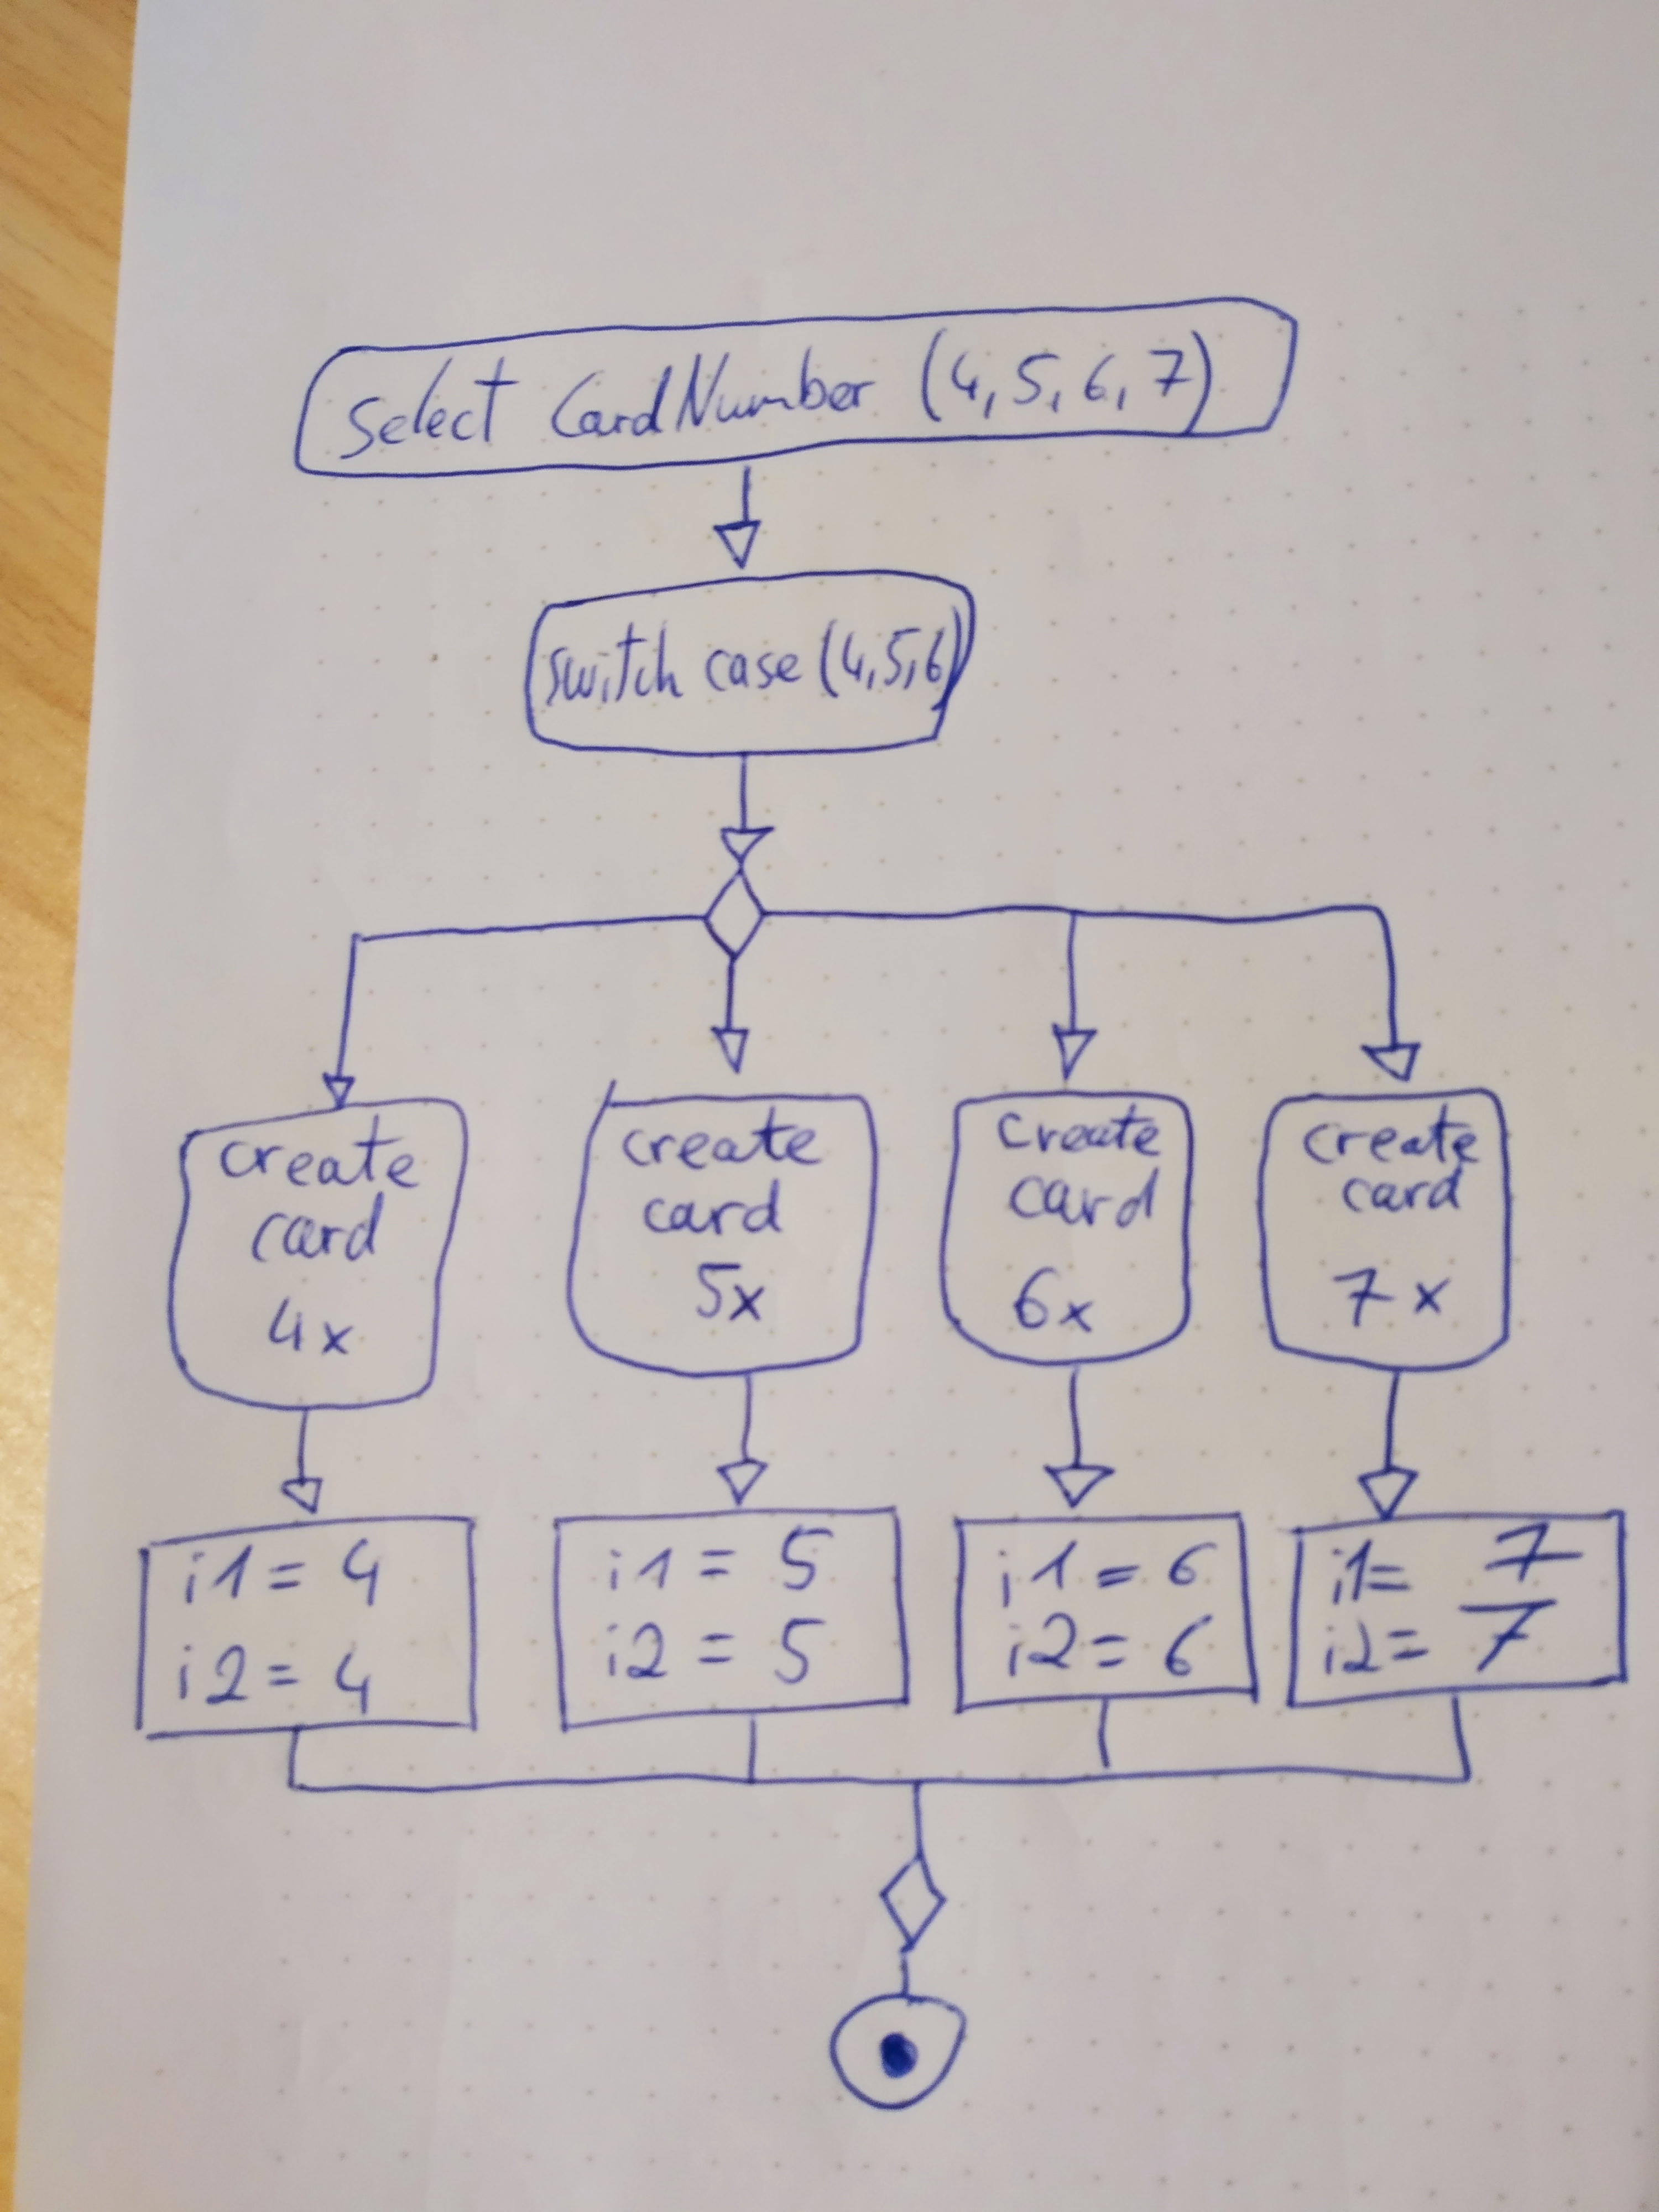 select CardNumber (4,5,6,7)
switch case (4,5,6)
create
card
4x
create
card
5x
create
card
6x
create
card
7x
i1 = 4
i2 = 4
i1 = 5
i2 = 5
i1 = 6
i2 = 6
i1= 7
i2= 7